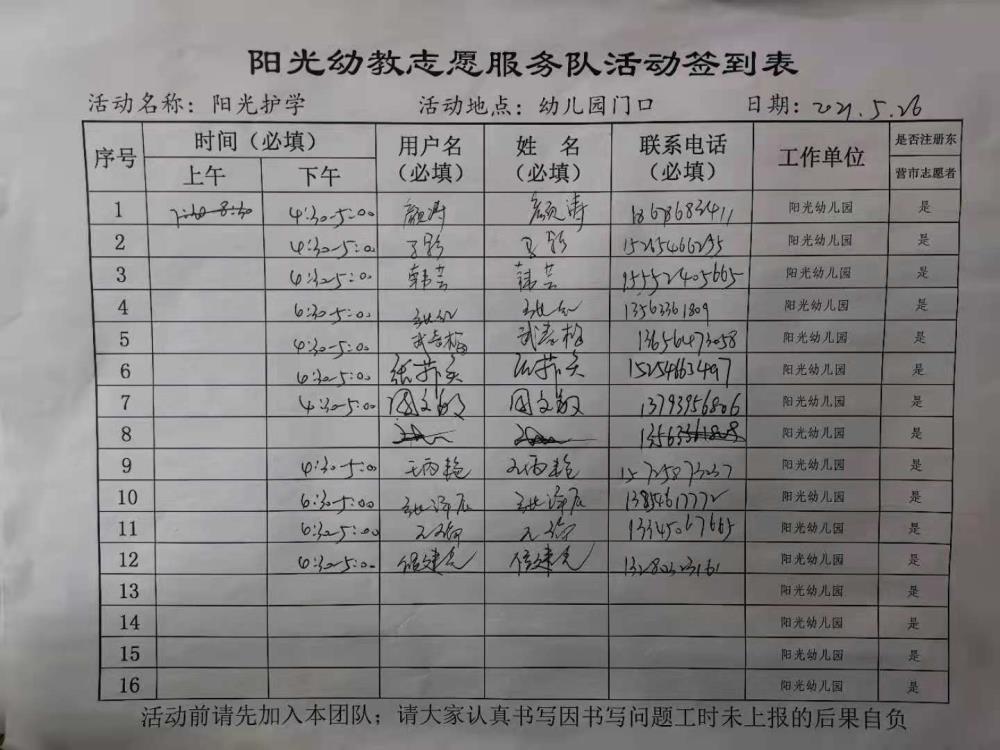 阳光幼教志愿服务队活动签到表
活动名称：阳光护学 活动地点：幼儿园门口 日期：2021.5.26
序号 时间（必填） 上午 下午 用户名（必填） 姓名（必填） 联系电话（必填） 工作单位 是否注册东营市志愿者
1 7:30-8:30 4:30-5:00 颜涛 颜涛 18678683411 阳光幼儿园 是
2 4:30-5:00 15265466295 阳光幼儿园 是
3 4:30-5:00 韩芸 韩芸 15552405665 阳光幼儿园 是
4 4:30-5:00 13563361809 阳光幼儿园 是
5 4:30-5:00 武春梅 武春梅 13656473058 阳光幼儿园 是
6 4:30-5:00 15254663497 阳光幼儿园 是
7 4:30-5:00 周文敏 周文敏 13793956806 阳光幼儿园 是
8 阳光幼儿园 是
9 4:30-5:00 王丙艳 王丙艳 15725873237 阳光幼儿园 是
10 4:30-5:00 阳光幼儿园 是
11 4:30-5:00 13345067665 阳光幼儿园 是
12 4:30-5:00 13280323161 阳光幼儿园 是
13 阳光幼儿园 是
14 阳光幼儿园 是
15 阳光幼儿园 是
16 阳光幼儿园 是
活动前请先加入本团队；请大家认真书写因书写问题工时未上报的后果自负